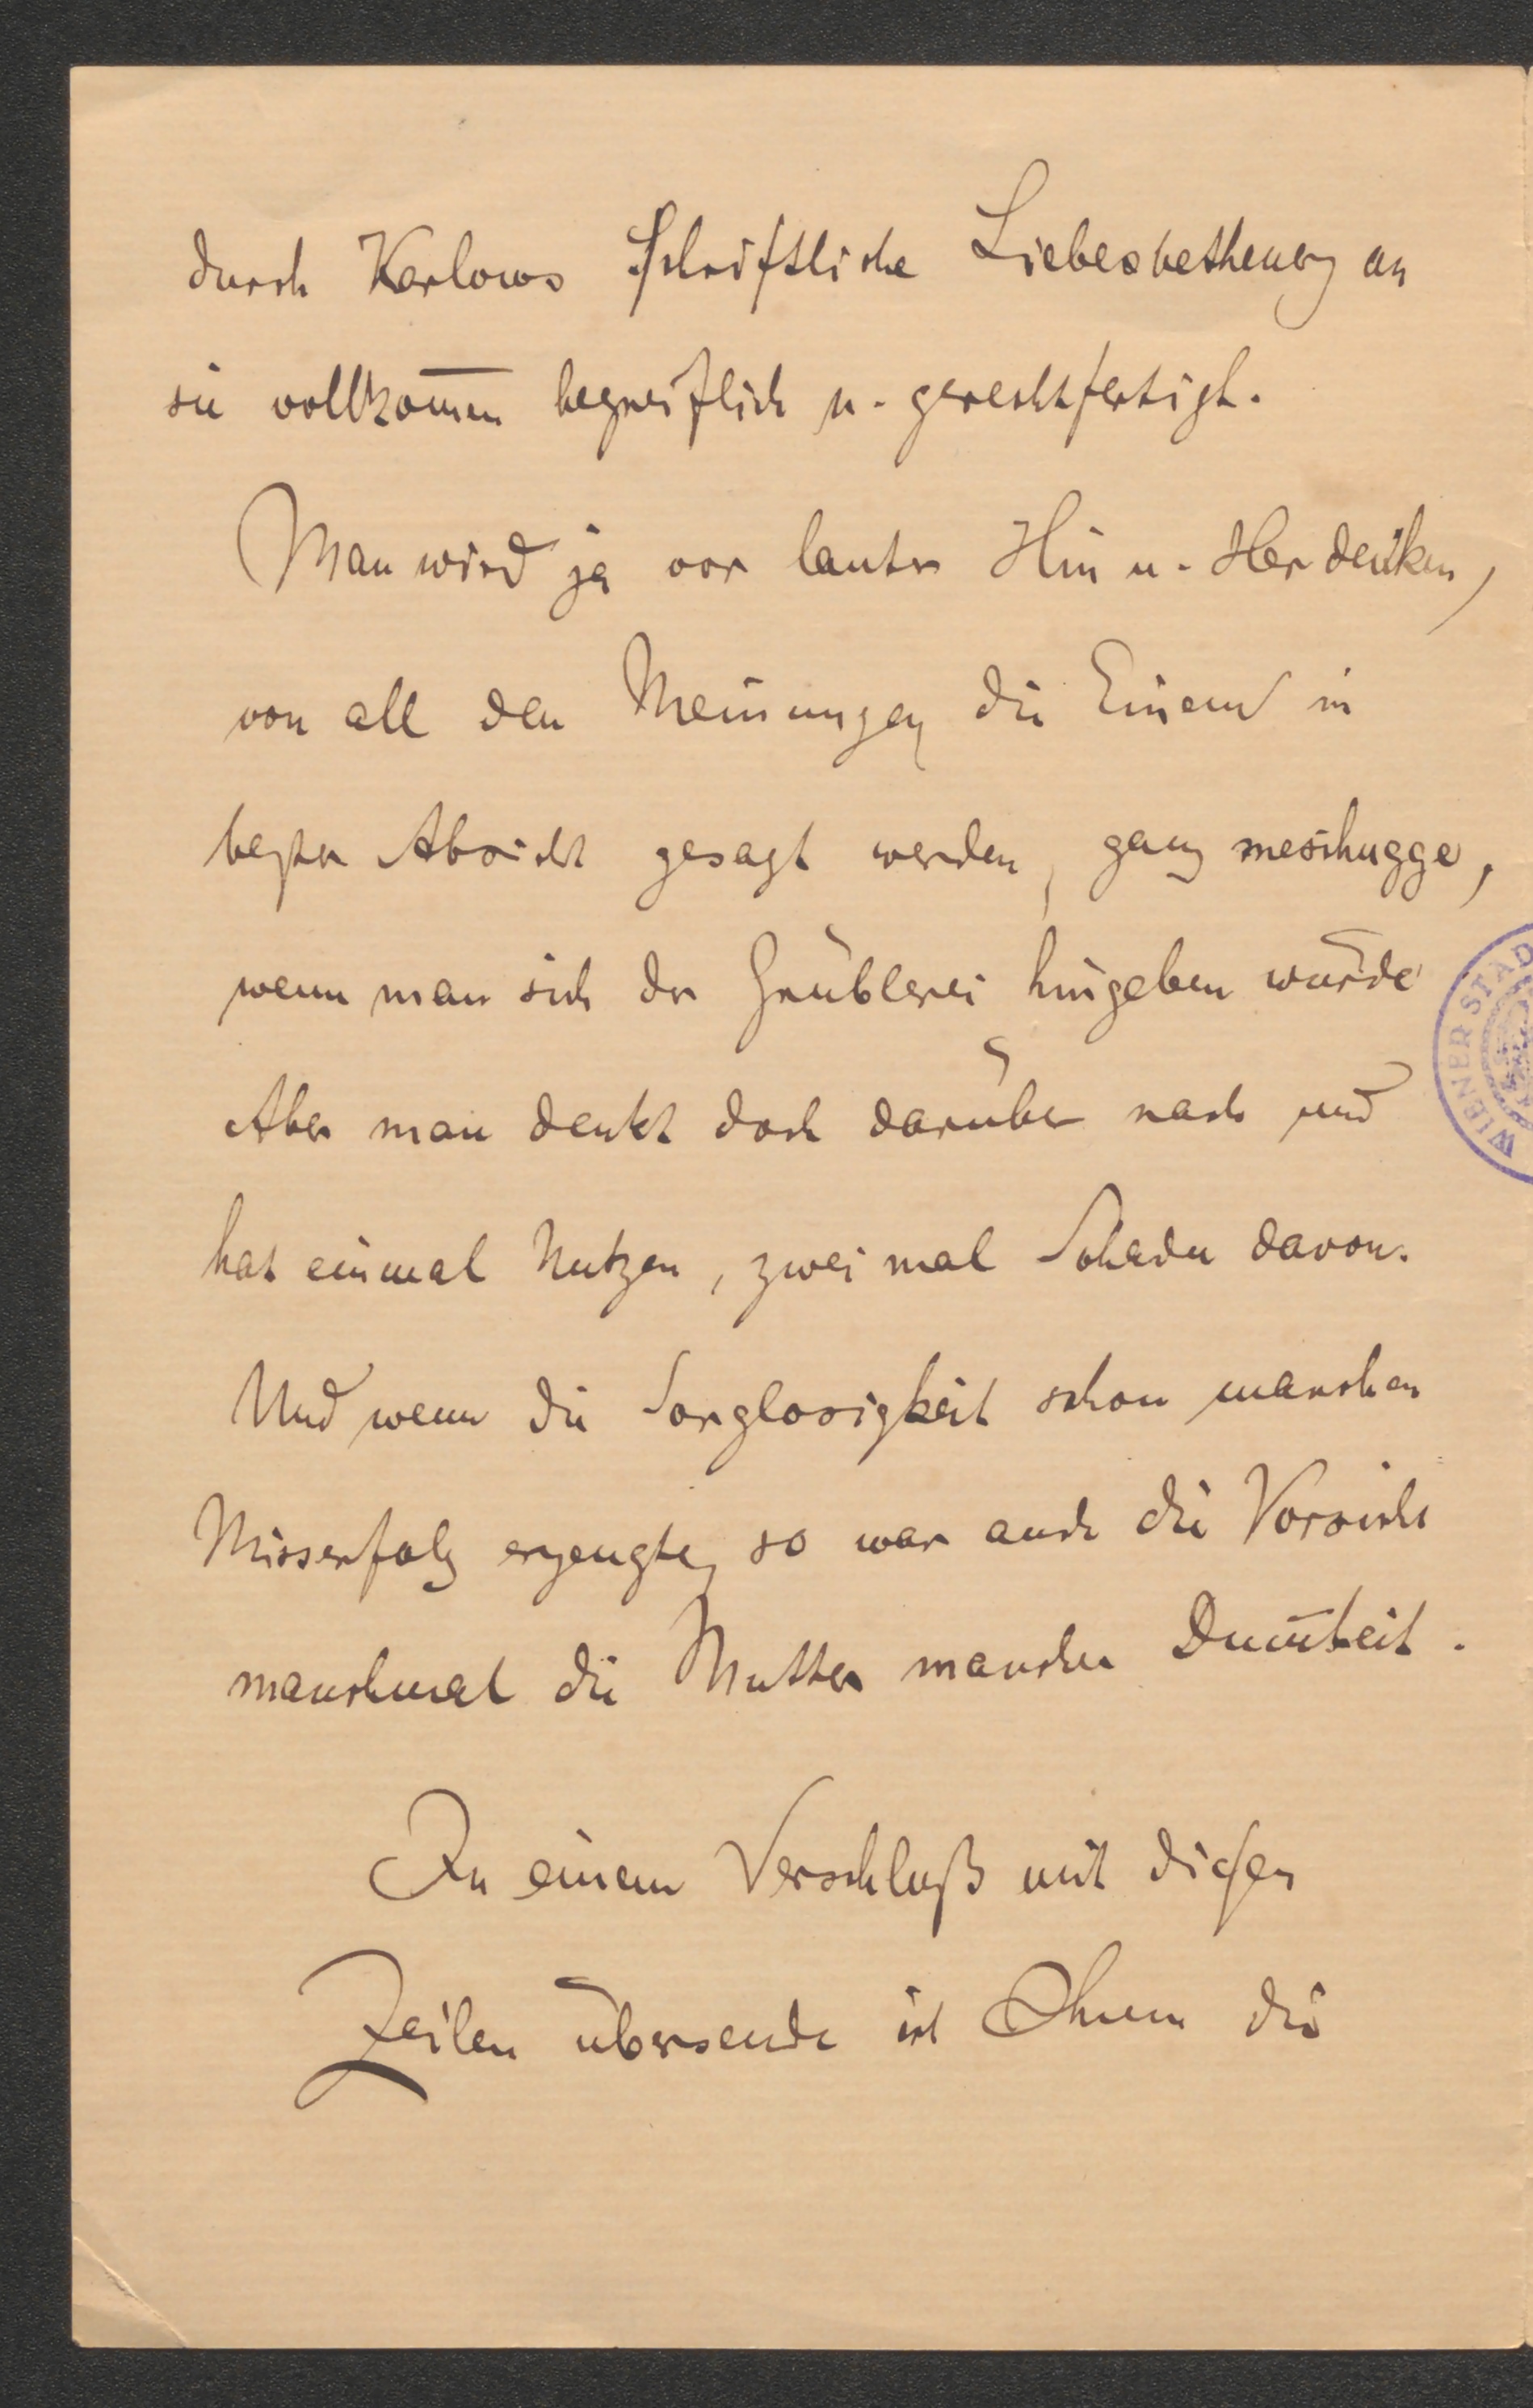 durch Karlows schriftliche Liebesbetheuerg an
sie vollkom̅en begreiflich u. gerechtfertigt.
Man wird ja vor lauter Hin u. Her denken,
von all den Meinungen die Einem in
bester Absicht gesagt werden, ganz meschugge,
wenn man sich der Grüblerei hingeben würde
Aber man denkt doch darüber nach und
hat einmal Nutzen, zwei mal Schaden davon.
Und wenn die Sorglosigkeit schon manchen
Misserfolg erzeugte, so war auch die Vorsicht
manchmal die Mutter mancher Dum̅heit.
In einem Verschluß mit diesen
Zeilen übersende ich Ihnen die
WIENER STAD